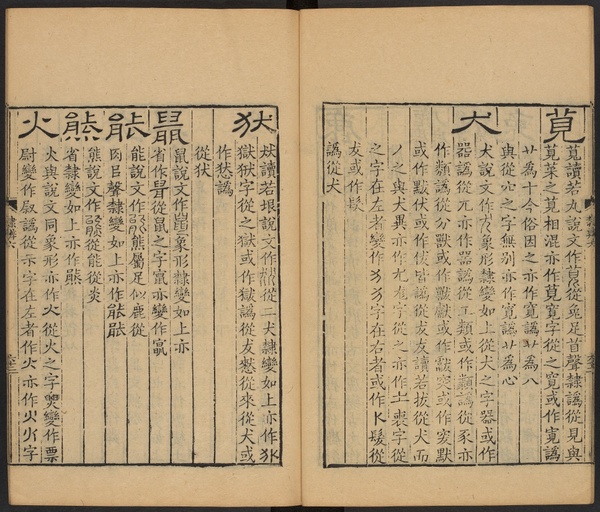 莧
莧讀若丸說文作從兔足苜聲隸譌從見與
莧菜之莧相混亦作莧寬字從之寬或作寛譌
艹為十今俗因之亦作寛譌艹為八
與從穴之字無別亦作寬譌艹為心
犬
犬說文作象形隸變如上從犬之字器或作
器譌從兀亦作器譌從工類或作類譌從豕亦
作類譌從分獸或作獸獻或作獻突或作突默
或作默伏或作伏皆譌從犮犮讀若拔從犬而
丿之與犬異亦作尢尨字從之亦作士喪字從
之字在左者變作犭犭字在右者或作髮從
犮或作髟
譌從犬
㹜
㹜讀若垠說文作從二犬隸變如上亦作
獄㹜字從之獄或作獄譌從犮憖從來從犬或
作憖譌
從㹜
鼠
鼠說文作象形隸變如上亦
省作從鼠之字竄亦變作竄
能
能說文作熊屬足似鹿從
肉㠯聲隸變如上亦作能能
熊
熊說文作從能從炎
省隸變如上亦作熊
火
火與說文同象形亦作火從火之字㷠變作票
尉變作尉譌從示字在左者作火亦作火火字